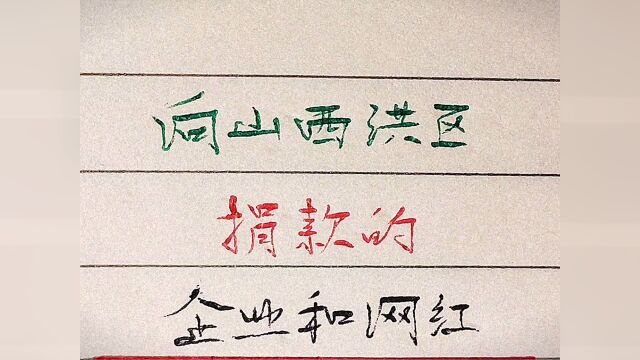 向山西洪区
捐款的
企业和网红